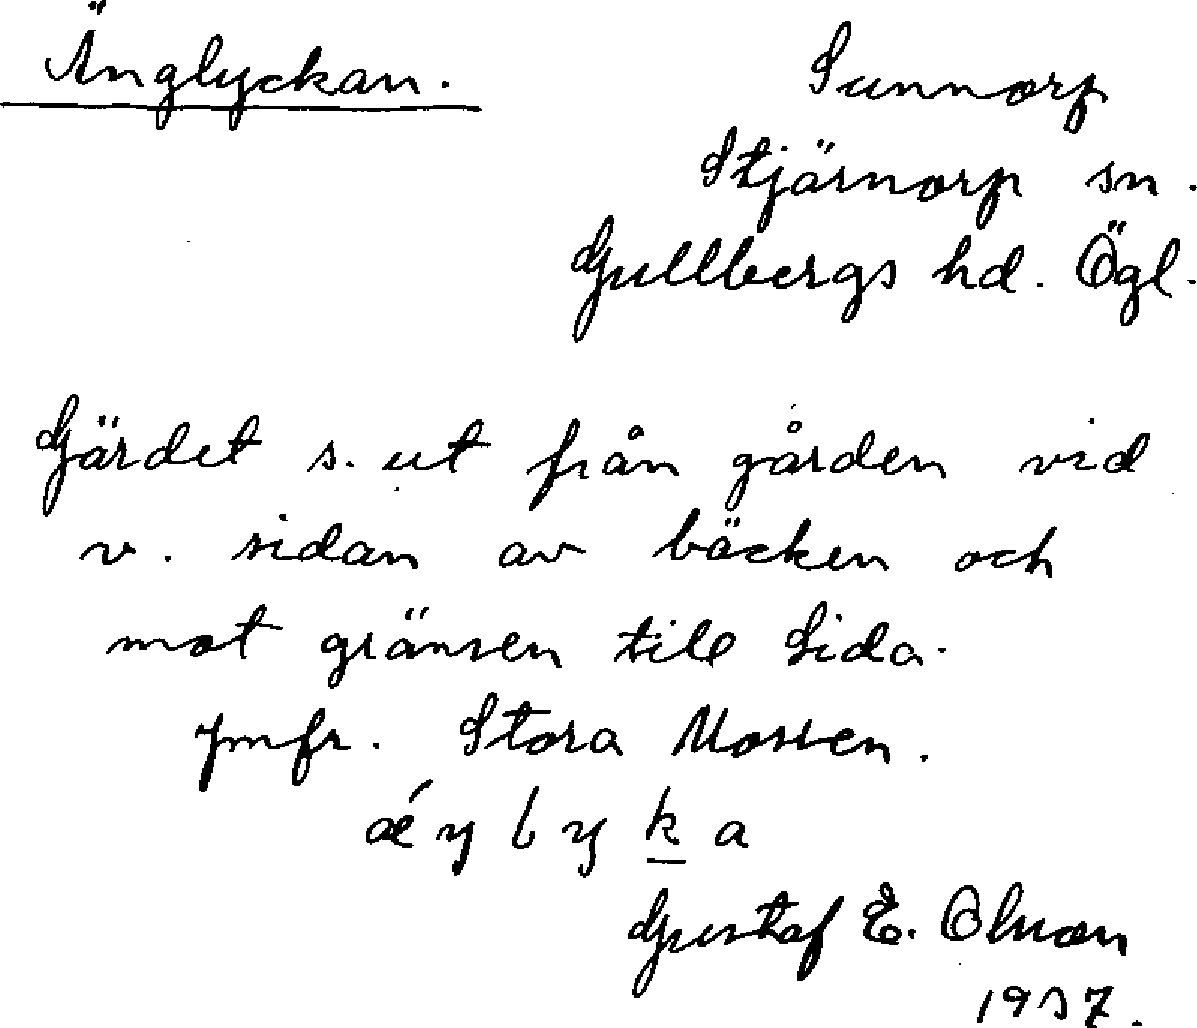 Änglyckan.
Sunnorp
Stjärnorp sn.
Gullbergs hd. Ögl.
Gärdet s. ut från gården vid
v. sidan av bäcken och
mot gränsen till Lida.
Jmfr. Stora Mossen.
ǽŋlyka
Gustaf E. Olsson
1937.